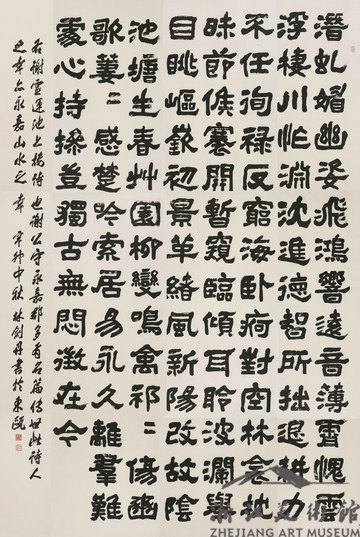 潛虬媚幽姿飛鴻響遠音薄霄愧雲
浮棲川怍淵沈進德智所拙退耕力
不任徇祿反窮海臥痾對空林衾枕
昧節候褰開暫窺臨傾耳聆波瀾舉
目眺嶇嶔初景革緒風新陽改故陰
池塘生春艸園柳變鳴禽祁〻傷豳
歌萋〻感楚吟索居易永久離羣難
處心持操豈獨古無悶徵在今
右謝靈運池上樓詩也謝公守永嘉郡多有名篇傳世此詩人
之幸亦永嘉山水之幸 中秋林劍丹書於東甌
浙江美術館
ZHEJIANG ART MUSEUM